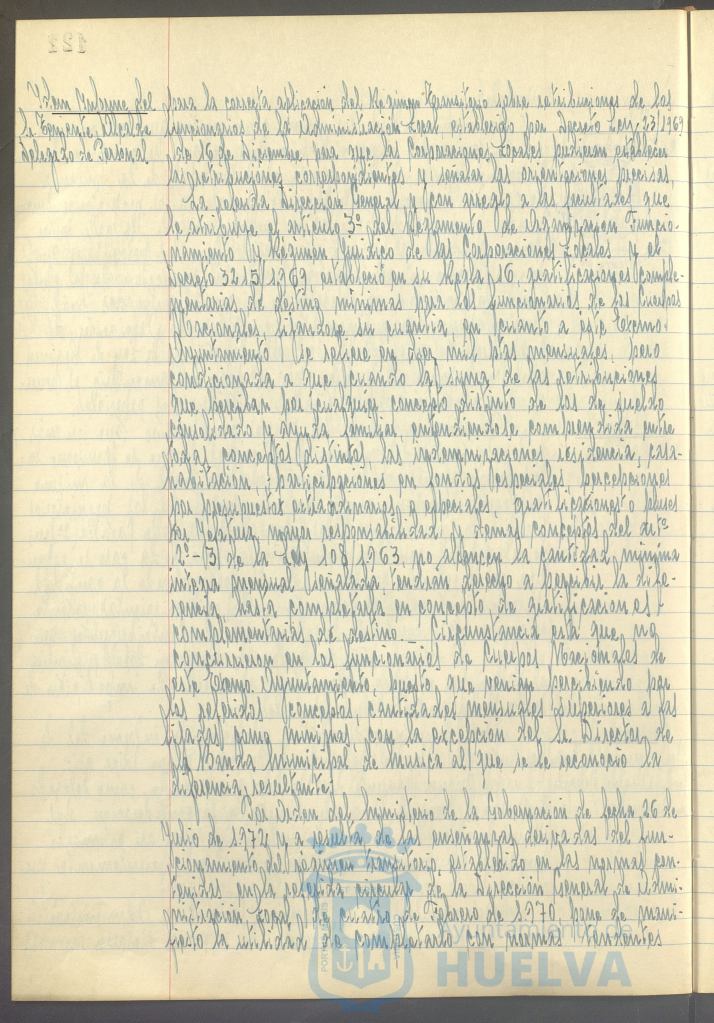 Idem Informe del
Sr. Teniente Alcalde
Delegado de Personal
para la correcta aplicación del Régimen transitorio sobre retribuciones de los
funcionarios de la Administración Local, establecido por Decreto Ley 23/1969
de 16 de Diciembre para que las Corporaciones Locales pudieran establecer
las retribuciones correspondientes y señalar las orientaciones precisas.
La referida Dirección General y con arreglo a las facultades que
le atribuye el artículo 3º del Reglamento de Organización Funcio-
namiento y Régimen Jurídico de las Corporaciones Locales y el
Decreto 3215/1969, estableció en su Regla 16, gratificaciones comple-
mentarias de destino mínimas para los funcionarios de los Cuerpos
Nacionales, fijandose su cuantía, en cuanto a este Excmo.
Ayuntamiento se refiere en mil ptas mensuales, pero
condicionada a que cuando la suma de las retribuciones
que perciban por cualquier concepto distinto de los de sueldo
consolidado y ayuda familiar, entendiendose comprendida entre
tales conceptos distintos, las indemnizaciones, residencia, casa-
habitación, participaciones en fondos especiales, percepciones
por presupuestos extraordinarios o especiales, gratificaciones o pluses
por Jefatura, mayor responsabilidad y demas conceptos del artº
2º-3 de la Ley 108/1963, no alcancen la cantidad mínima
integra mensual señalada, tendran derecho a percibir la dife-
rencia hasta completarla en concepto de gratificaciones
complementarias de destino.- Circunstancia esta que no
concurrieron en los funcionarios de Cuerpos Nacionales de
este Excmo. Ayuntamiento, puesto que venían percibiendo por
los referidos conceptos, cantidades mensuales superiores a las
fijadas como mínimas, con la excepción del Sr. Director de
la Banda Municipal de Musica al que se le reconoció la
diferencia resultante.
Por Orden del Ministerio de la Gobernación de fecha 26 de
Julio de 1972 y a reserva de las enseñanzas derivadas del fun-
cionamiento del régimen transitorio, establecido en las normas con-
tenidas en la referida circular de la Dirección General de Admi-
nistración Local de cuatro de Febrero de 1970, pone de mani-
fiesto la utilidad de completarlo con normas tendentes
Ayuntamiento de
HUELVA